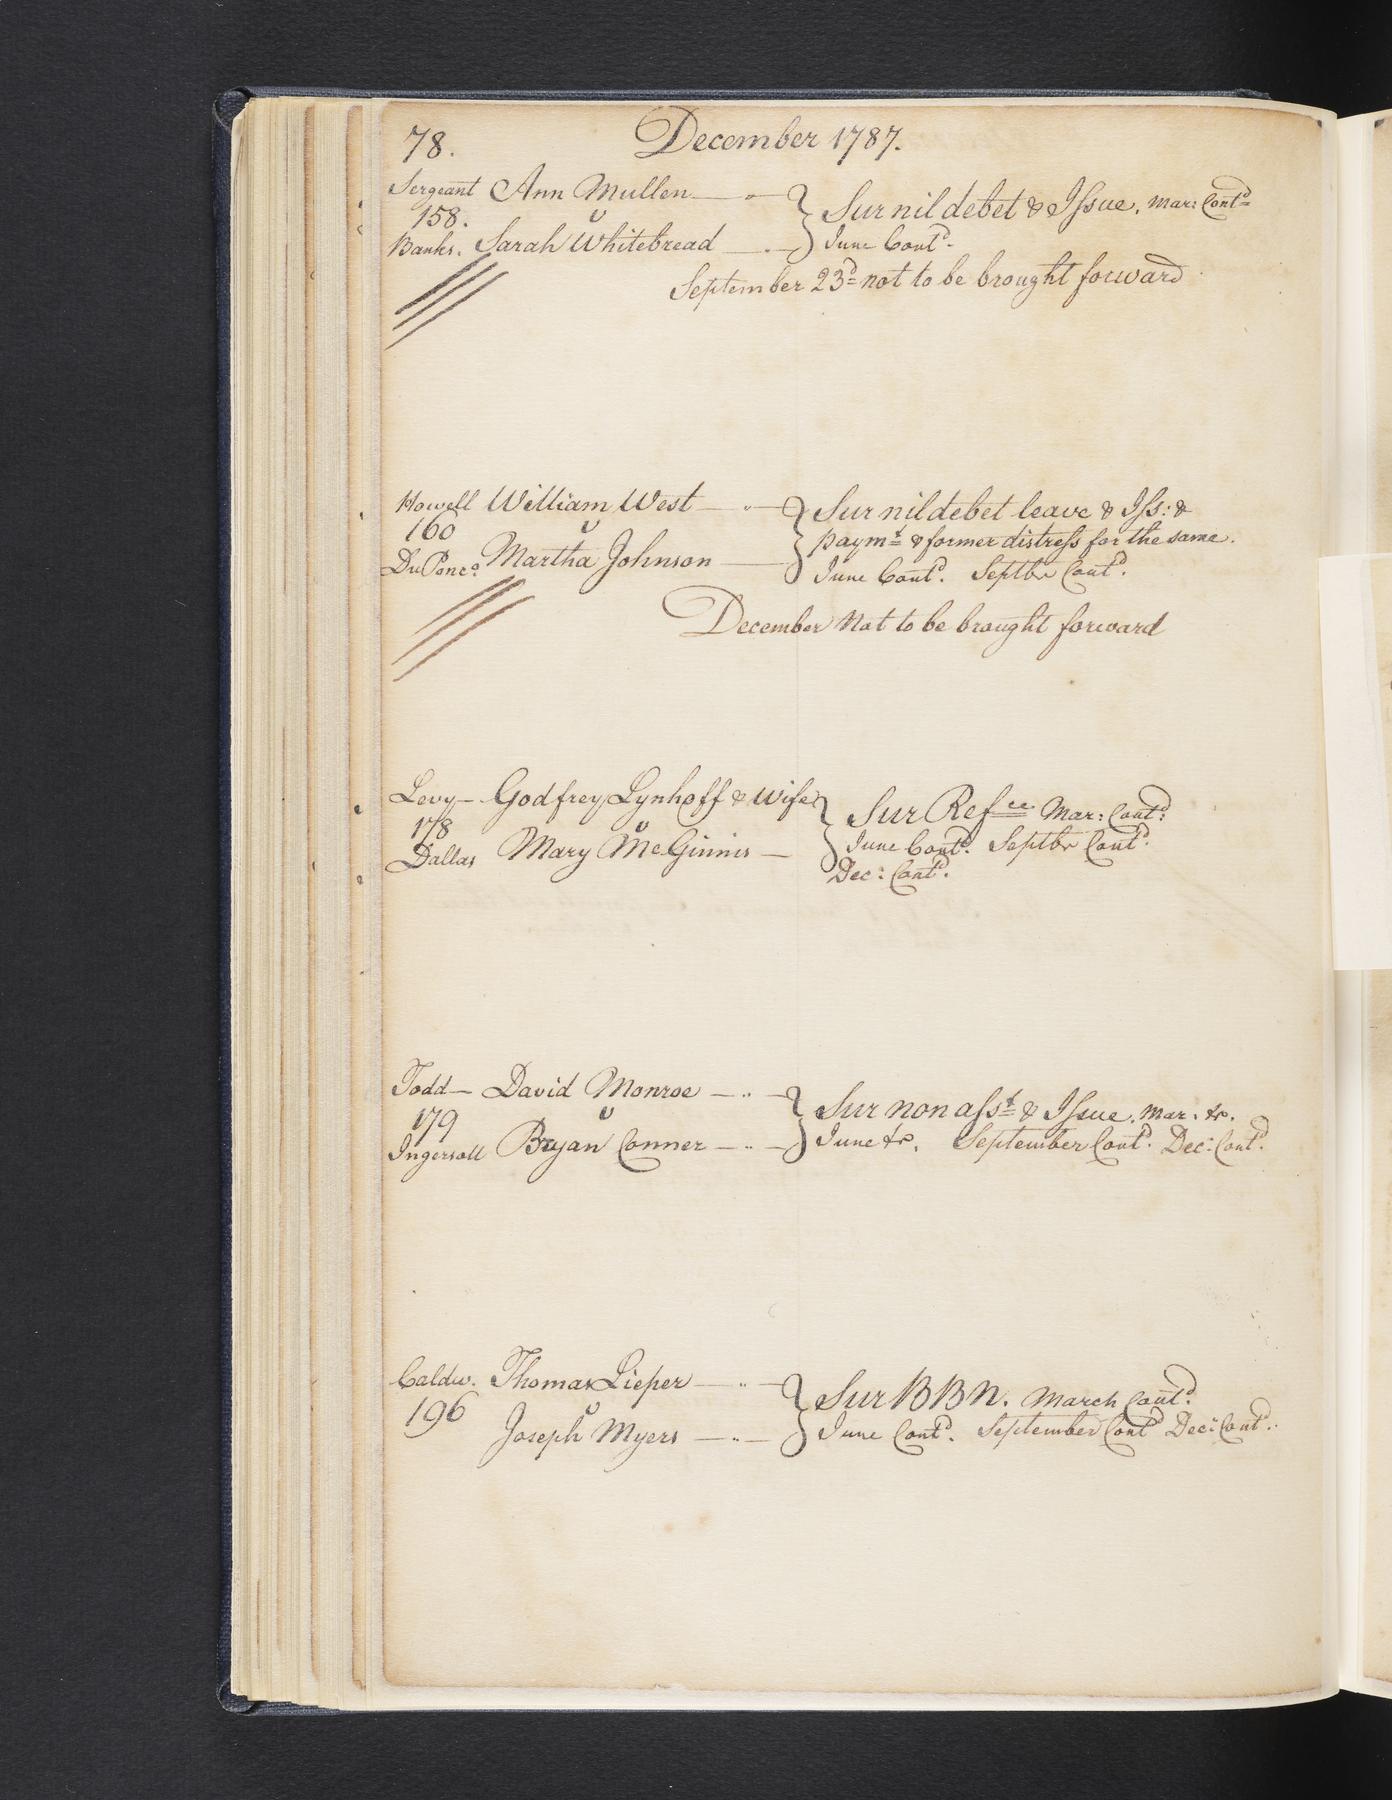 78. December 1787.
Sergeant Ann Mullen — " — } Sur nil debet & Issue. Mar: Contd
158. v
Banks. Sarah Whitebread — . — June Contd.
September 23d not to be brought forward
Howell William West — " — } Sur nil debet leave & Iss: &
160 v paymt & former distress for the same.
DuPonco. Martha Johnson — June Contd. Septbr Contd.
December Not to be brought forward
Levy — Godfrey Lynhoff & Wife } Sur Refce Mar: Contd:
178 v June Contd. Septbr Contd.
Dallas Mary McGinnis —
Dec: Contd.
Todd — David Monroe — .. — } Sur non asst & Issue. Mar: &c.
179 v
Ingersoll Bryan Conner — .. — June &c. September Contd. Dec: Contd.
Caldw. Thomas Lieper — .. — } Sur BBN. March Contd:
196 v
Joseph Myers — .. — June Contd. September Contd Dec: Contd: